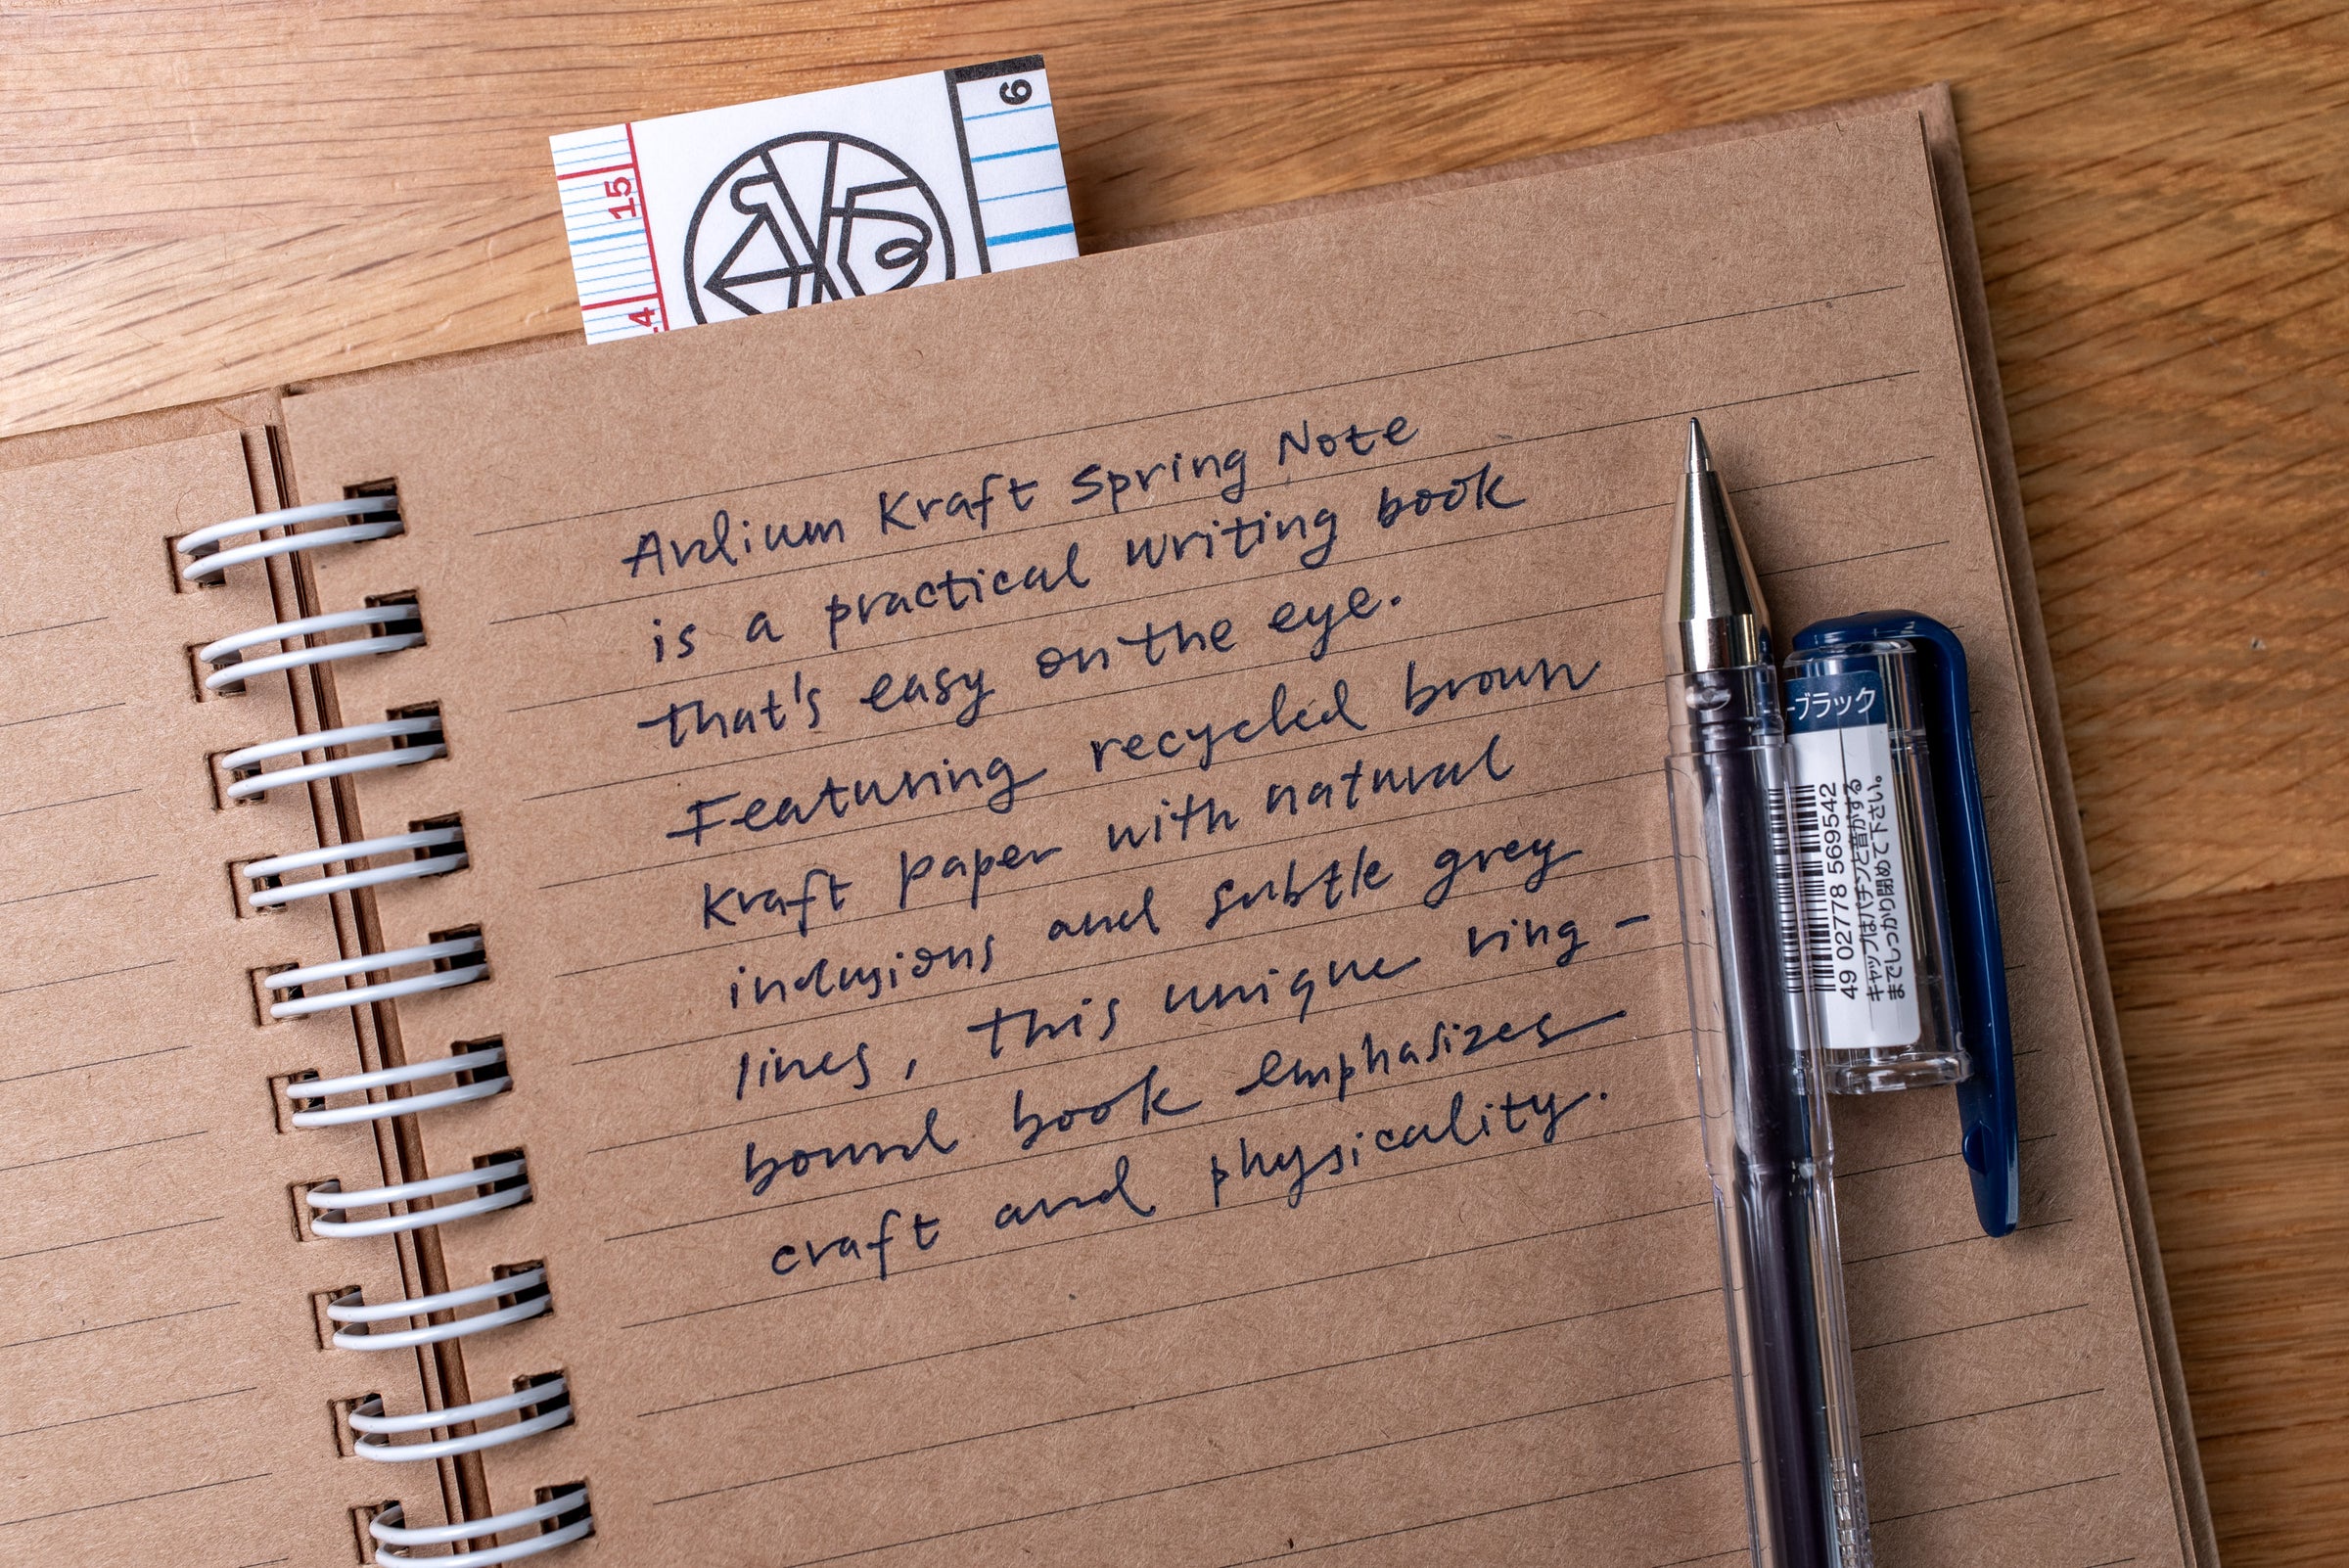 6
15
14
Ardium Kraft Spring Note
is a practical writing book
that's easy on the eye.
Featuring recycled brown
Kraft paper with natural
inclusions and subtle grey
lines, this unique ring-
bound book emphasizes
craft and physicality.
ーブラック
49 02778 569542
キャップはパチンと音がする
までしっかり閉めて下さい。